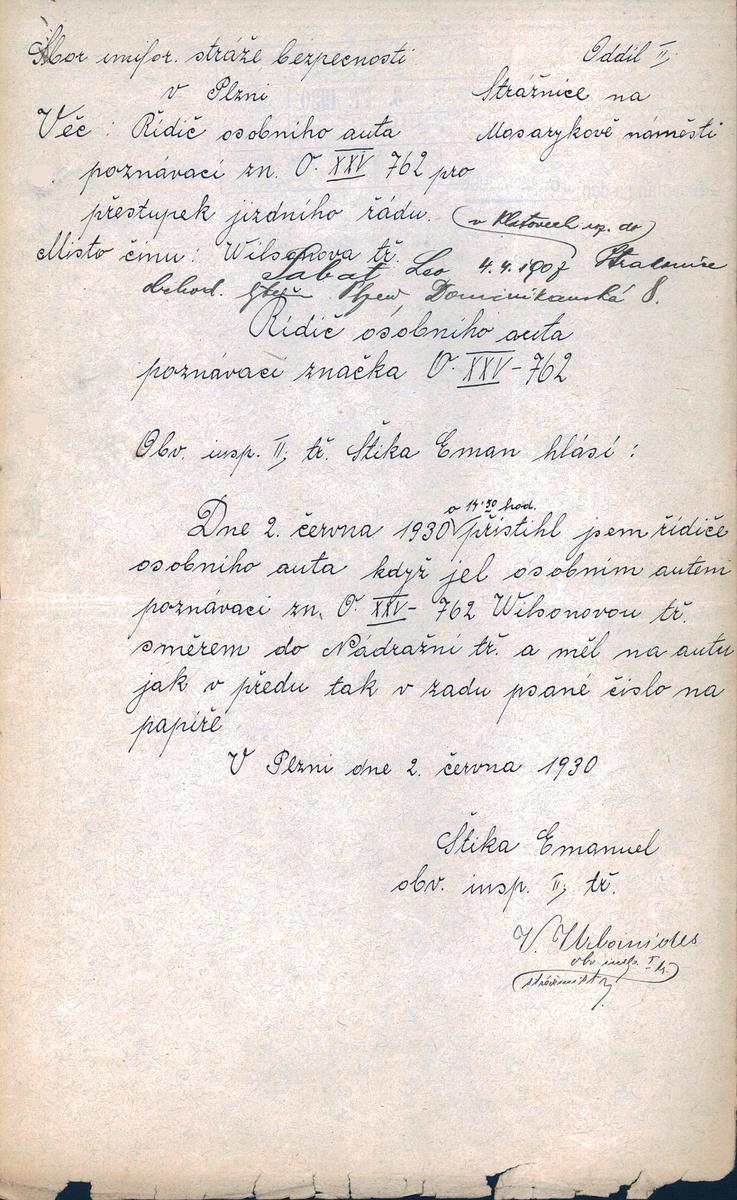 Sbor unifor. stráže bezpečnosti
v Plzni
Oddíl II;
Strážnice na
Masarykově náměstí
Věc: Řidič osobního auta
poznávací zn. O. XXV 762 pro
přestupek jízdního řádu.
(v Klatovech
Místo činu: Wilsonova tř.
Sabat Leo 4.4.1907 Strakonice
obchod. Plzeň, Dominikánská 8.
Řidič osobního auta
poznávací značka O. XXV - 762
Obv. insp. II; tř. Štika Eman hlásí:
o 14.30 hod.
Dne 2. června 1930 přistihl jsem řidiče
osobního auta když jel osobním autem
poznávací zn. O. XXV - 762 Wilsonovou tř.
směrem do Nádražní tř. a měl na autu
jak v předu tak v zadu psané číslo na
papíře
V Plzni dne 2. června 1930
Štika Emanuel
obv. insp. II; tř.
V. Urbanides
obv. insp. I tř.